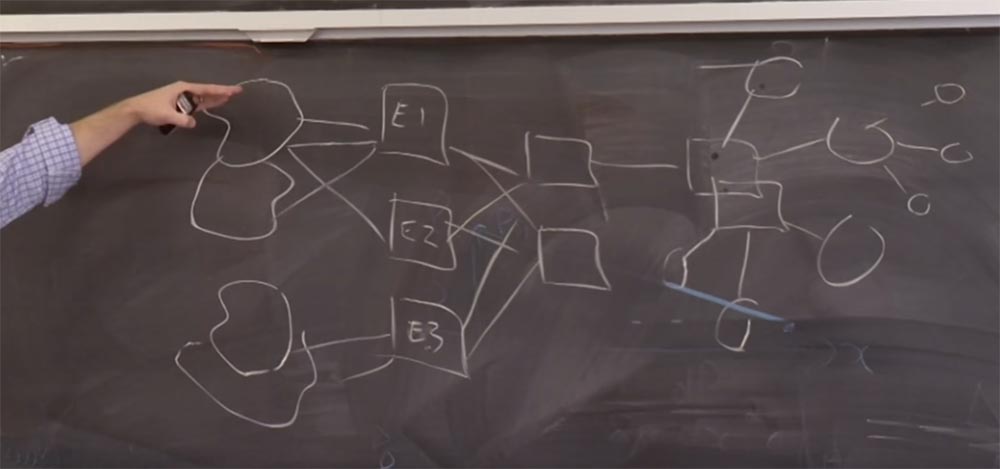 E1
E2
E3